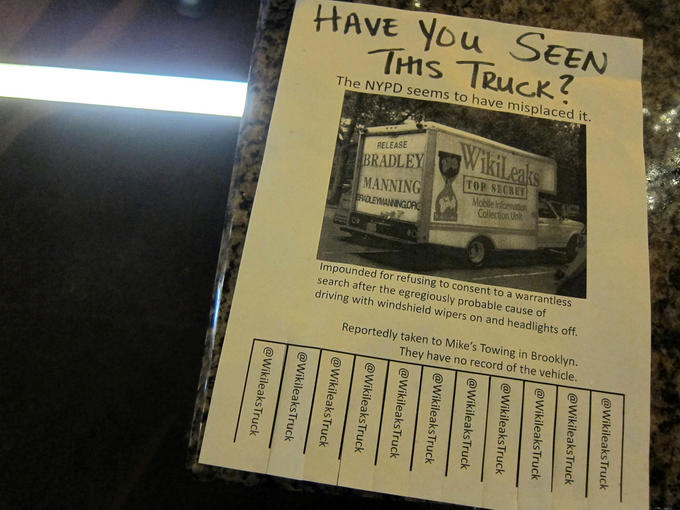 HAVE YOU SEEN
THIS TRUCK?
The NYPD seems to have misplaced it.
RELEASE
BRADLEY
MANNING
BRADLEYMANNING.ORG
WikiLeaks
TOP SECRET
Mobile Information
Collection Unit
Impounded for refusing to consent to a warrantless
search after the egregiously probable cause of
driving with windshield wipers on and headlights off.
Reportedly taken to Mike's Towing in Brooklyn.
They have no record of the vehicle.
@WikileaksTruck
@WikileaksTruck
@WikileaksTruck
@WikileaksTruck
@WikileaksTruck
@WikileaksTruck
@WikileaksTruck
@WikileaksTruck
@WikileaksTruck
@WikileaksTruck
@WikileaksTruck